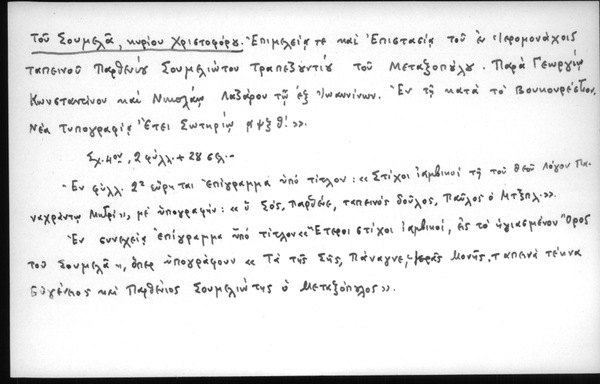 τοῦ Σουμελᾶ, κυρίου Χριστοφόρου. Ἐπιμελείᾳ τε καὶ Ἐπιστασίᾳ τοῦ ἐν Ἱερομονάχοις
ταπεινοῦ Παρθενίου Σουμελιώτου Τραπεζυντίου τοῦ Μεταξοπύλου. Παρὰ Γεωργίῳ
Κωνσταντίνου καὶ Νικολάῳ Λαζάρου τῷ ἐξ Ἰωαννίνων. Ἐν τῇ κατὰ τὸ Βουκουρέστιον
Νέᾳ Τυπογραφίᾳ Ἔτει Σωτηρίῳ αψξθ! ».
Σχ. 4ον, 2 φύλλ. + 28 σελ. -
Ἐν φύλλ. 2α εὕρηται ἐπίγραμμα ὑπὸ τίτλον: « Στίχοι ἰαμβικοὶ τῇ τοῦ θεοῦ Λόγου Πα-
ναχράντῳ Μητρί», μὲ ὑπογραφήν: « ὁ Σός, Παρθένε, ταπεινὸς δοῦλος, Παῦλος ὁ Μτξπλ. ».
Ἐν συνεχείᾳ ἐπίγραμμα ὑπὸ τίτλον « Ἕτεροι στίχοι ἰαμβικοί, εἰς τὸ ἡγιασμένον Ὄρος
τοῦ Σουμελᾶ », ὅπερ ὑπογράφουν « Τὰ τῆς Σῆς, Πάναγνε, ἱερᾶς Μονῆς, ταπεινὰ τέκνα
Εὐγένειος καὶ Παρθένιος Σουμελιώτης ὁ Μεταξόπολος ».